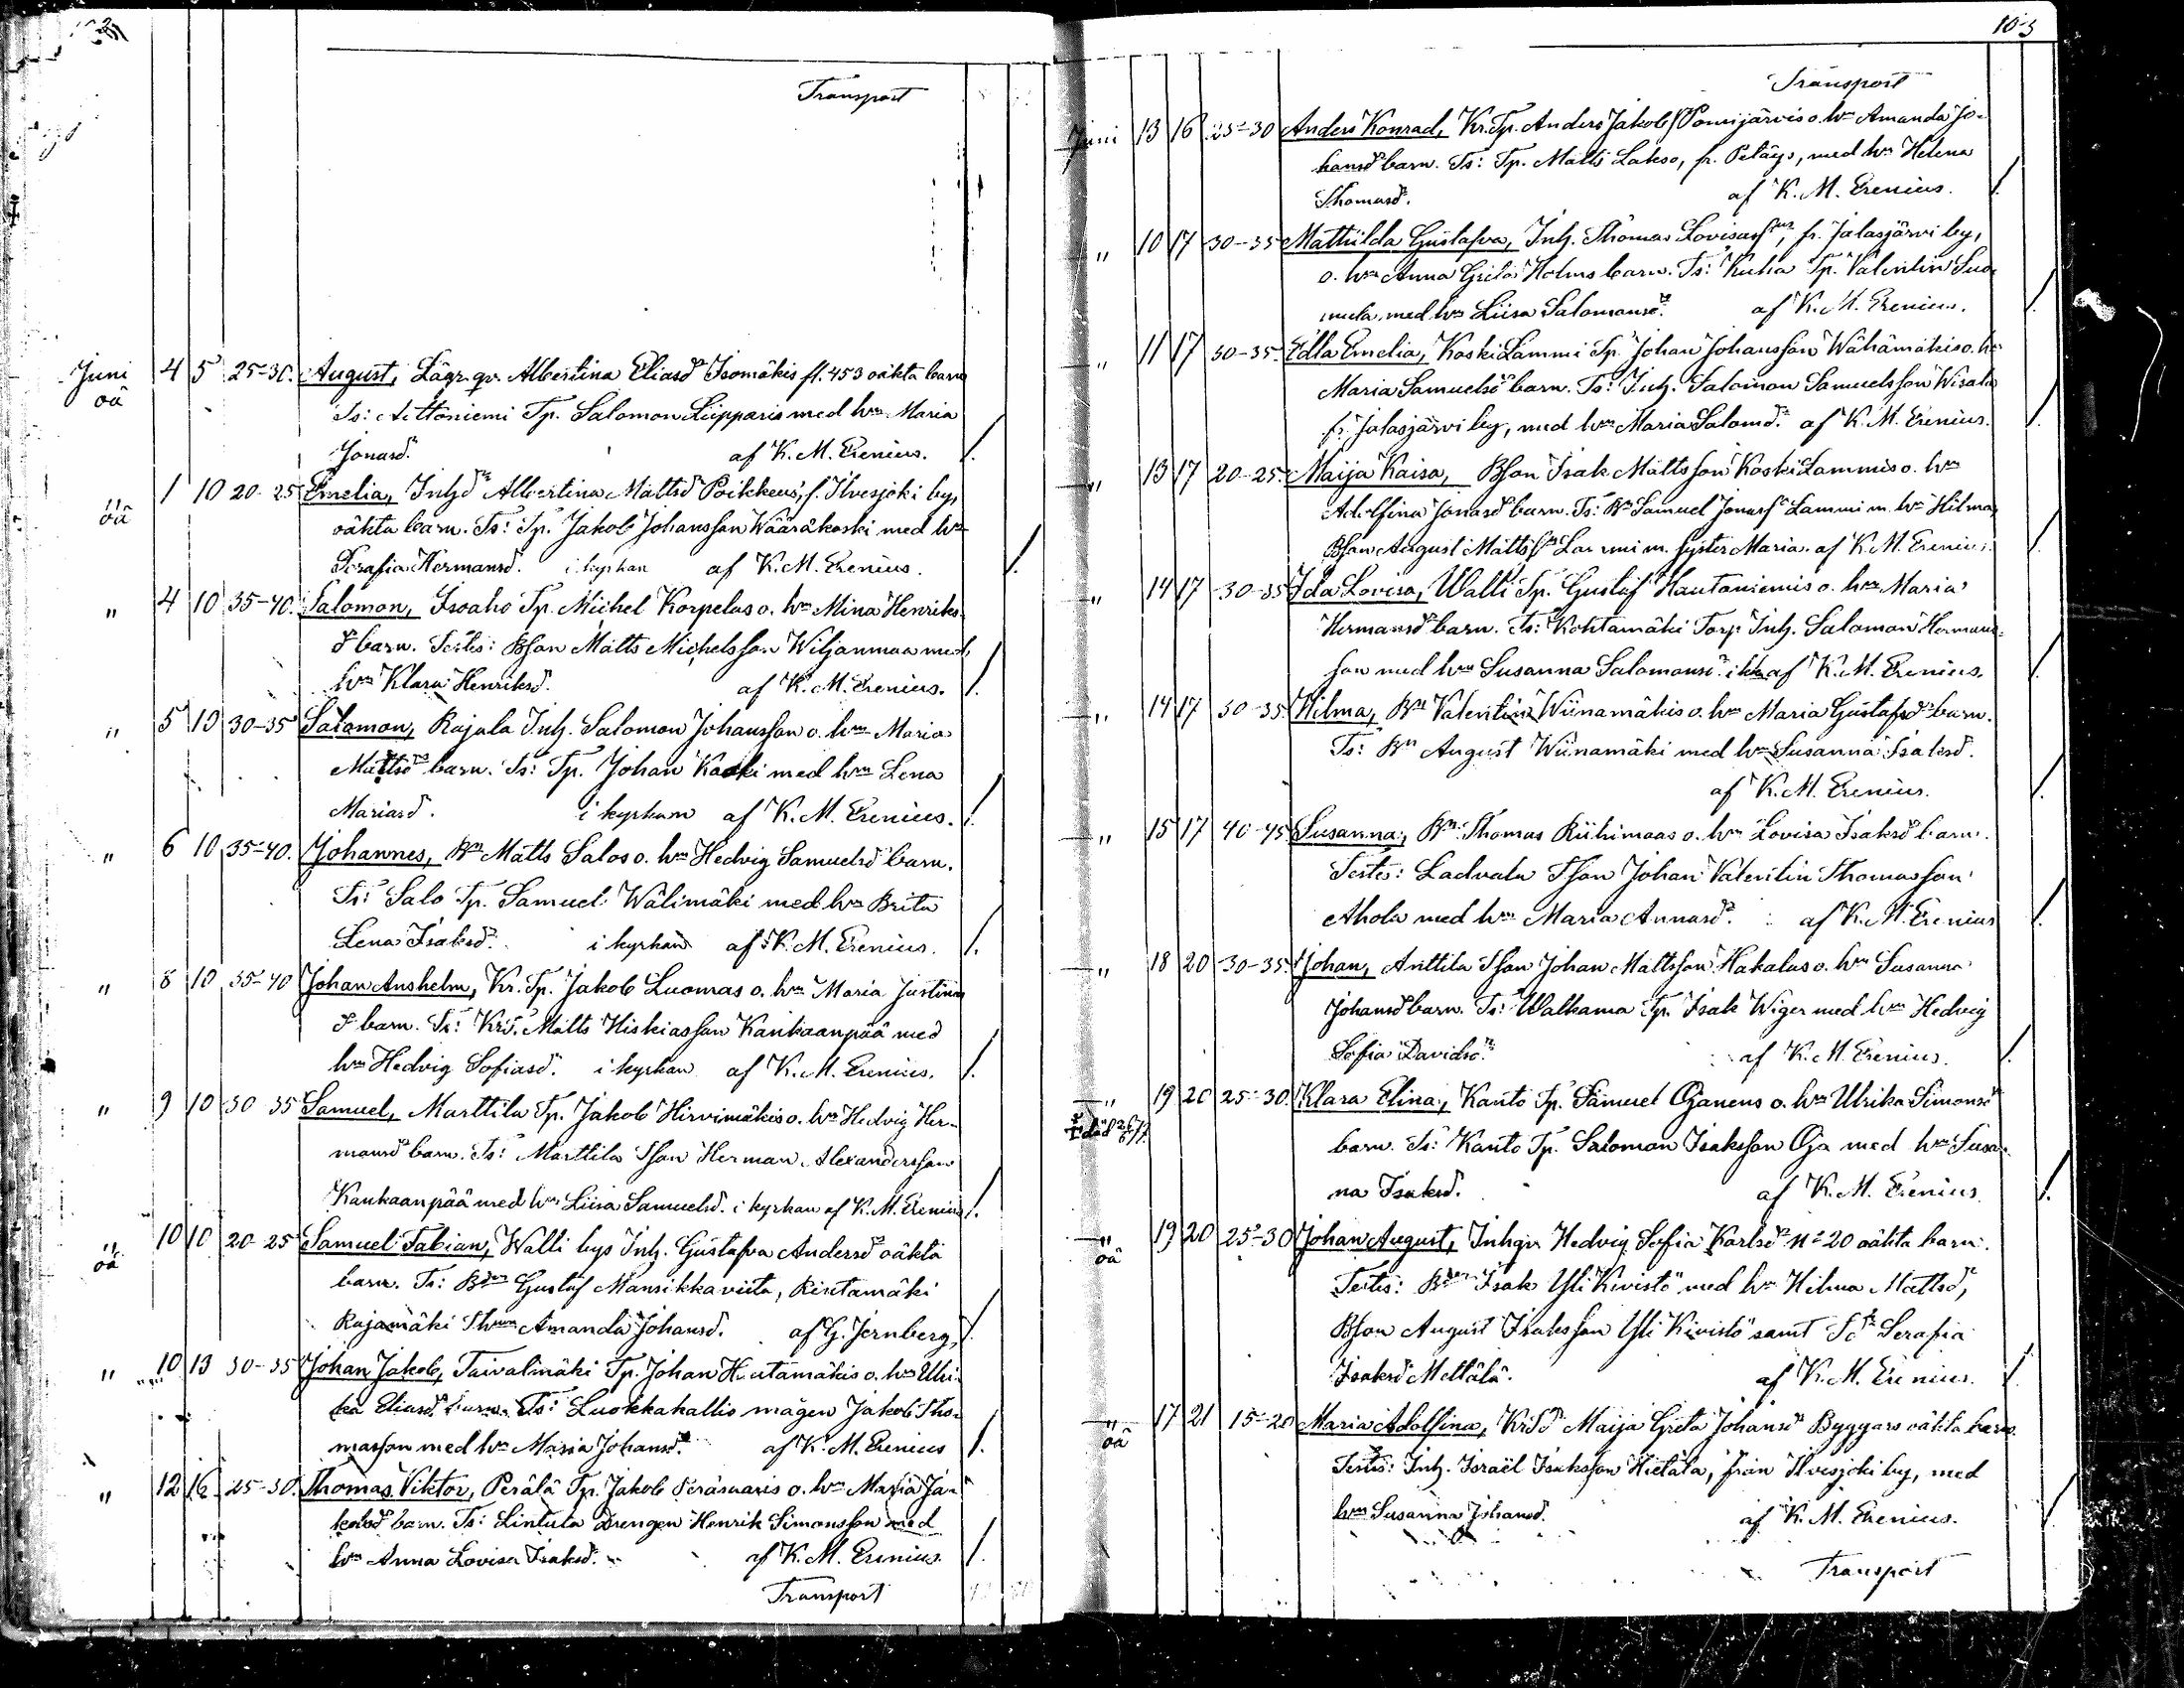 Transport
Juni 4 5 25-30. August, Lägr. qv. Albertina Eliasdr Isomäkis fl. 453 oäkta barn
oä Ts: Anttoniemi Tp. Salomon Luipparis med hn Maria
Jonasd. af K. M. Erenius. /.
" 1 10 20-25 Emelia, Inhdr Albertina Mattsd Poikkeus, f. Ilvesjoki by,
oä oäkta barn. Ts: Tp. Jakob Johansson Wääräkoski med hn
Serafia Hermansd. i kyrkan af K. M. Erenius. /.
" 4 10 35-40. Salomon, Isoaho Tp. Michel Korpelas o. hn Mina Henriks-
dr barn. Testes: Bson Matts Michelsson Wiljanmaa med
hn Klara Henriksd. af K. M. Erenius. /.
" 5 10 30-35 Salomon, Rajala Inh. Salomon Johansson o. hn Maria
Mattsdrs barn. Ts: Tp. Johan Koski med hn Lena
Mariasd. i kyrkan af K. M. Erenius. /.
" 6 10 35-40. Johannes, Bn Matts Salos o. hn Hedvig Samuelsd barn.
Ts: Salo Tp. Samuel Wälimäki med hn Brita
Lena Isaksd. i kyrkan af K. M. Erenius. /.
" 8 10 35-40 Johan Anshelm, Kr. Tp. Jakob Luomas o. hn Maria Justina
dr barn. Ts: KrT. Matts Hiskiasson Kankaanpää med
hn Hedvig Sofiasd. i kyrkan af K. M. Erenius. /.
" 9 10 30 35 Samuel, Marttila Tp. Jakob Hirvimäkis o. hn Hedvig Her-
mansd barn. Ts: Marttila Tson Herman Alexandersson
Kankaanpää med hn Liisa Samuelsd. i kyrkan af K. M. Erenius /.
" 10 10 20-25 Samuel Fabian, Walli bys Inh. Gustafva Andersd oäkta
oä barn. Ts: Bdn Gustaf Mansikkaviita, Rintamäki
Rajamäki Thnn Amanda Johansd. af G. Jernberg, /.
" 10 13 30-35 Johan Jakob, Taivalmäki Tp. Johan Hautamäkis o. hn Ulri-
ka Eliasd. barn. Ts: Luokkakallio mågen Jakob Tho-
masson med hn Maria Johansd. af K. M. Erenius /.
" 12 16 25-30. Thomas Viktor, Perälä Tp. Jakob Peräsaaris o. hn Maria Ja-
kobsd barn. Ts: Lintula Drengen Henrik Simonsson med
hn Anna Lovisa Isaksd. af K. M. Erenius. /.
Transport
103
Transport
Juni 13 16 25-30 Anders Konrad, Kr. Tp. Anders Jakob Pomijärvis o. hn Amanda Jo-
hansd barn. Ts: Tp. Matts Lakso, fr. Peläys, med hn Helena
Thomasd. af K. M. Erenius. /.
" 10 17 30-35 Mathilda Gustafva, Inh. Thomas Lovisass, fr. Jalasjärvi by,
o. hn Anna Greta Holms barn. Ts: Kuha Tp. Valentin Luo-
mula, med hn Liisa Salomonsd. af K. M. Erenius. /.
" 11 17 30-35. Edla Emelia, KoskiLammi Tp. Johan Johansson Wähämäkis o. hn
Maria Samuelsd barn. Ts: Inh. Salomon Samuelsson Wisala
fr. Jalasjärvi by, med hn Maria Salomd. af K. M. Erenius. /.
" 13 17 20-25. Maija Kaisa, Bson Isak Mattsson KoskiLammis o. hn
Adolfina Jonasd barn. Ts: Bn Samuel Jonass Lammi m. hn Hilma,
Bson August Mattss Lammi m. syster Maria. af K. M. Erenius. /.
" 14 17 30-35 Ida Lovisa, Walli Tp. Gustaf Hautaniemis o. hn Maria
Hermansd barn. Ts: Kohtamäki Torp. Inh. Salomon Hermans-
son med hn Susanna Salomonsd. i kk af K. M. Erenius. /.
" 14 17 30-35. Hilma, Bn Valentin Wiinamäkis o. hn Maria Gustafsd barn.
Ts: Bn August Wiinamäki med hn Susanna Isaksd.
af K. M. Erenius. /.
" 15 17 40-45 Susanna, Bn Thomas Riihimaas o. hn Lovisa Isaksd barn.
Testes: Ladvala Tson Johan Valentin Thomasson
Ahola med hn Maria Annasd. af K. M. Erenius /.
" 18 20 30-35. Johan, Anttila Tson Johan Mattsson Hakalas o. hn Susanna
Johansd barn. Ts: Walkama Tp. Isak Wiger med hn Hedvig
Sofia Davidsd. af K. M. Erenius. /.
" 19 20 25-30. Klara Elina, Kanto Tp. Samuel Ojanens o. hn Ulrika Simonsd
död barn. Ts: Kanto Tp. Salomon Isaksson Oja med hn Susan-
na Isaksd. af K. M. Erenius. /.
" 19 20 25-30 Johan August, Inhqv. Hedvig Sofia Karlsd No 20 oäkta barn.
oä Testes: Bdn Isak YliKivistö med hn Hilma Mattsd,
Bson August Isaksson YliKivistö samt Tdr Serafia
Isaksd Mettälä. af K. M. Erenius. /.
" 17 21 15-20 Maria Adolfina, KrTdr Maija Greta Johansd Byggars oäkta barn.
oä Testes: Inh. Israël Isaksson Hietala, från Ilvesjoki by, med
hn Susanna Johansd. af K. M. Erenius. /.
Transport